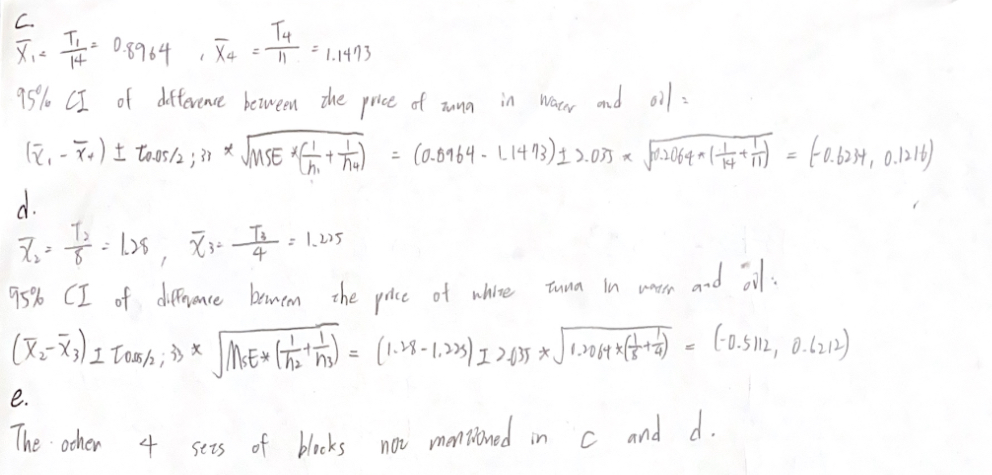 c.
X̄₁ = T₁/14 = 0.8964 , X̄₄ = T₄/11 = 1.1473
95% CI of difference between the price of tuna in water and oil :
(x̄₁ - x̄₄) ± t0.05/2 ; 33 * √(MSE * (1/n₁ + 1/n₄)) = (0.8964 - 1.1473) ± 2.035 * √(0.2064 * (1/14 + 1/11)) = (-0.6234, 0.1216)
d.
X̄₂ = T₂/8 = 1.28 , X̄₃ = T₃/4 = 1.225
95% CI of difference between the price of white tuna in water and oil :
(X̄₂ - X̄₃) ± t0.05/2 ; 33 * √(MSE * (1/n₂ + 1/n₃)) = (1.28 - 1.225) ± 2.035 * √(1.2064 * (1/8 + 1/4)) = (-0.5112, 0.6212)
e.
The other 4 sets of blocks not mentioned in c and d.